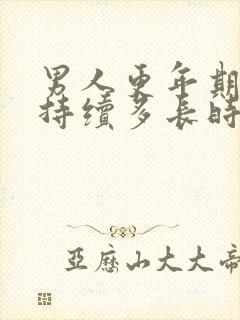 男人更年期
持續多長時
亞歷山大大帝